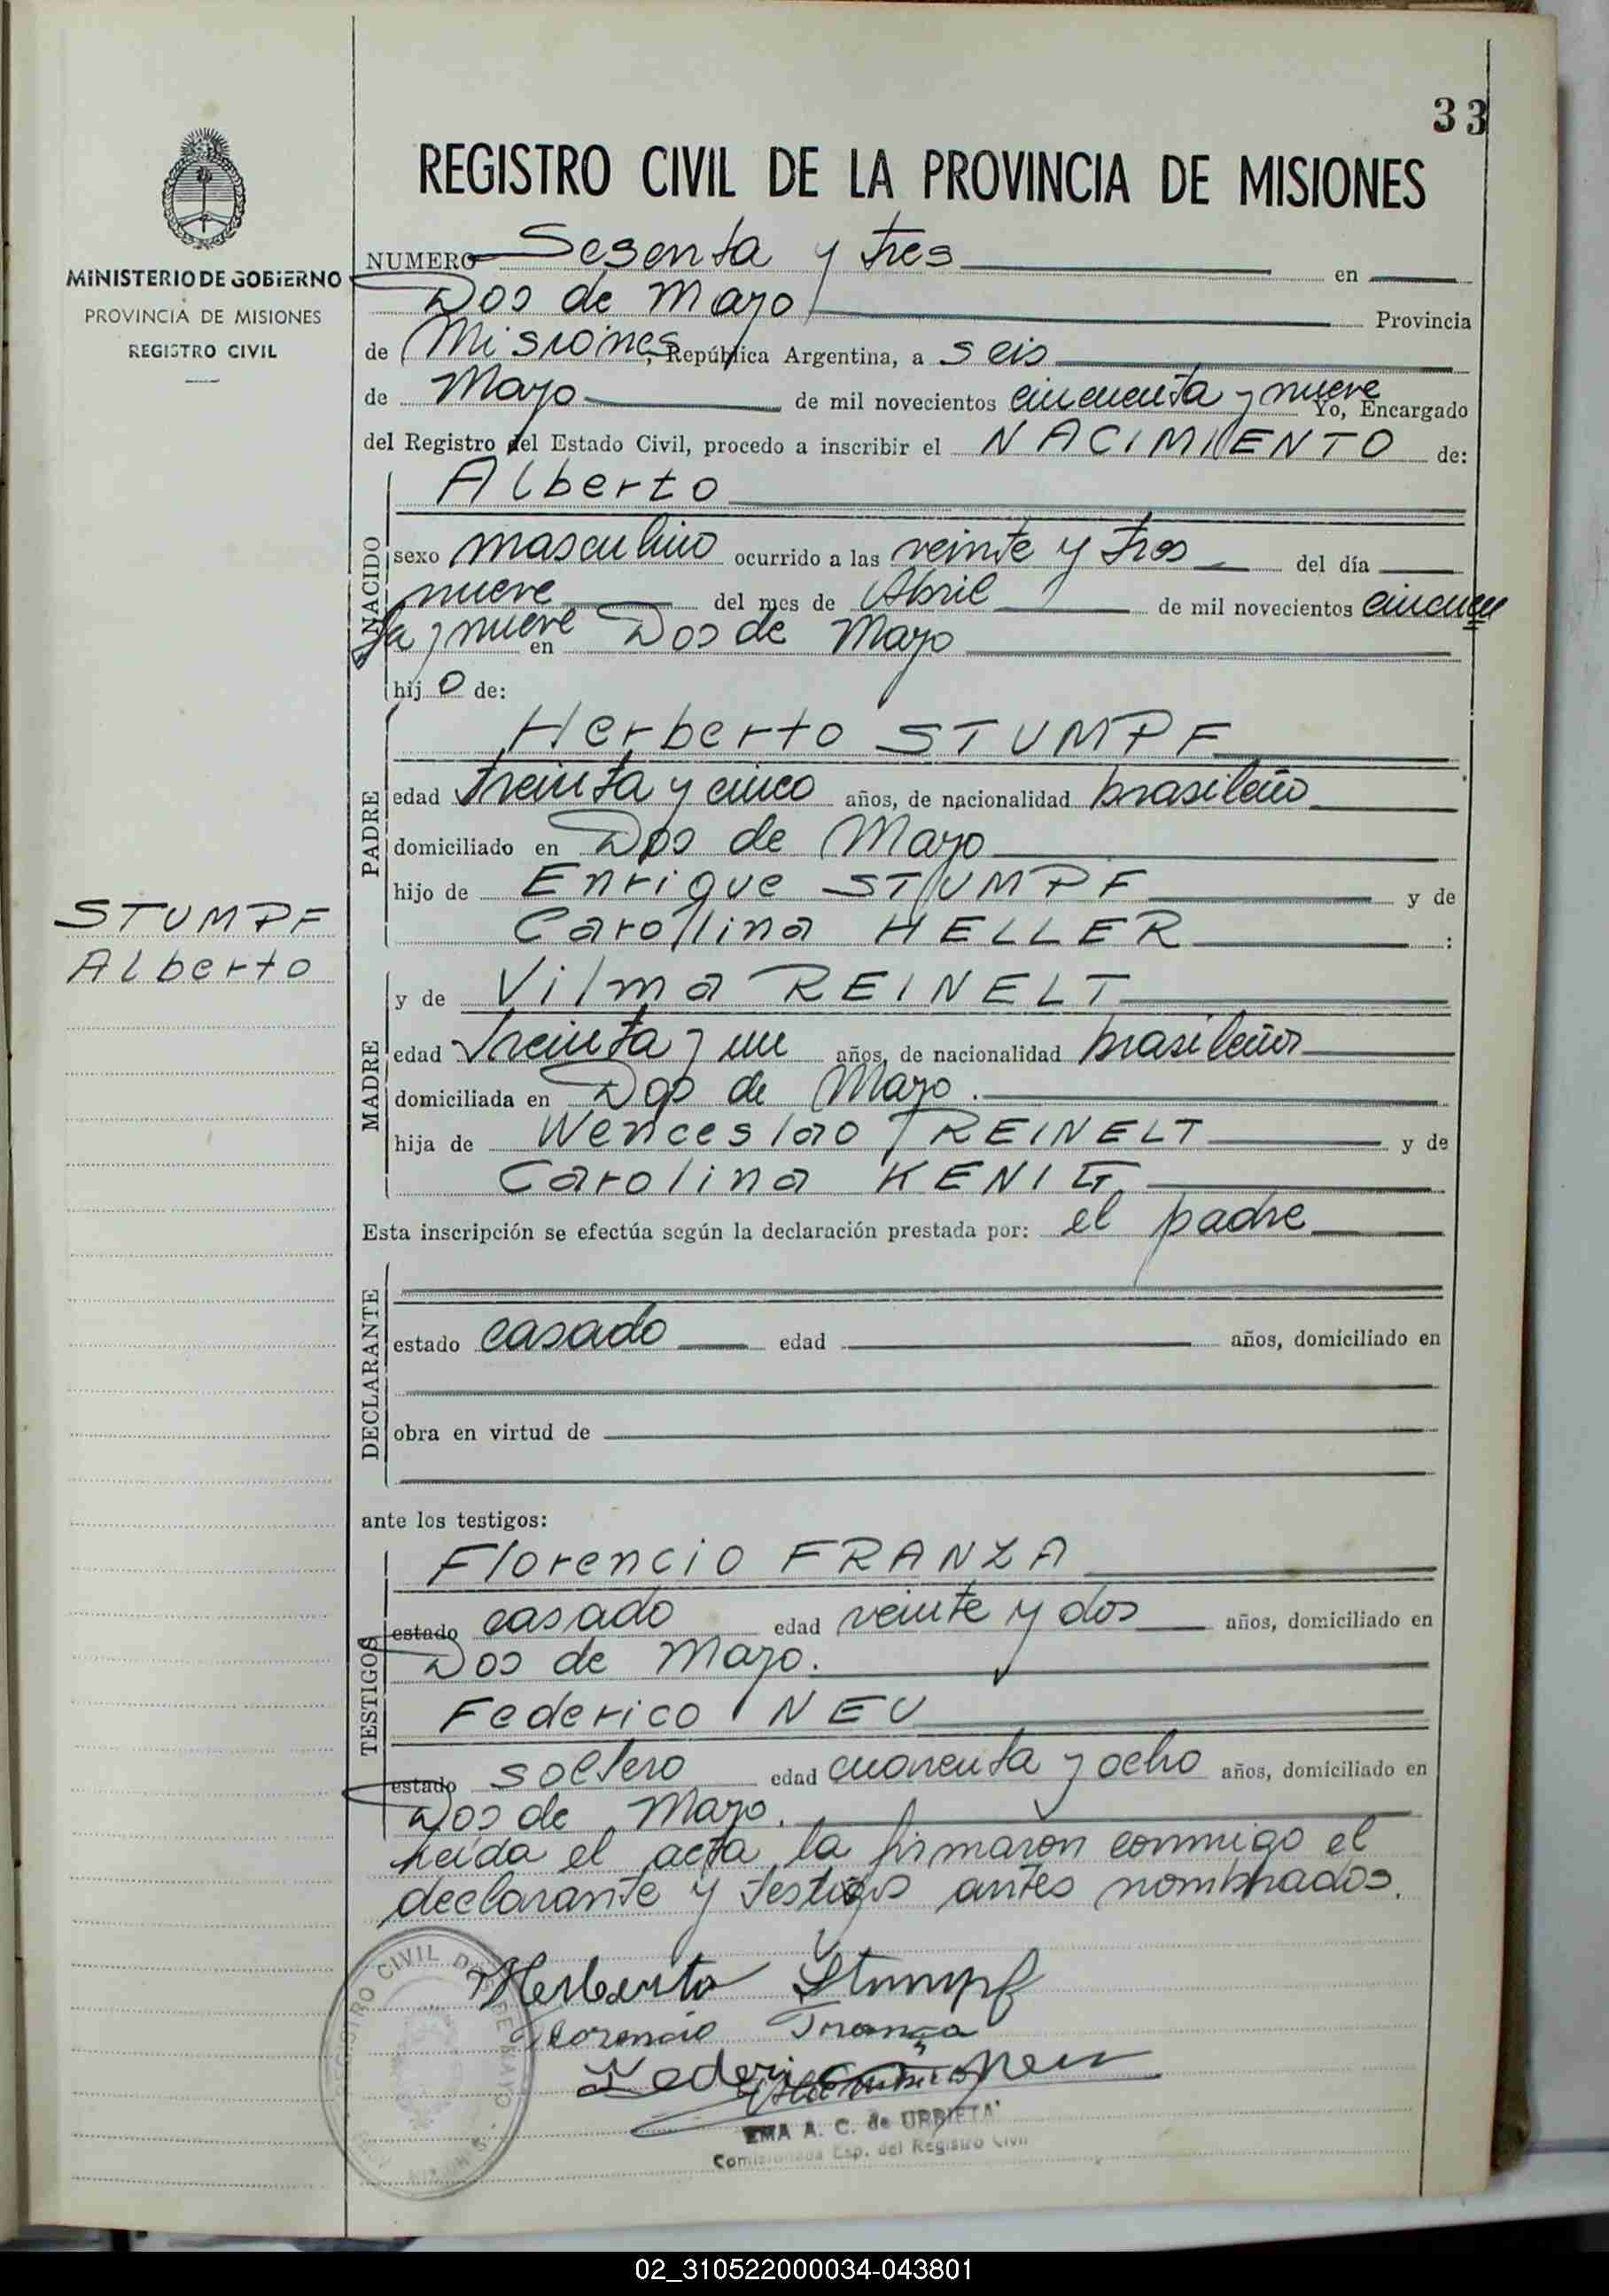 33
REGISTRO CIVIL DE LA PROVINCIA DE MISIONES
MINISTERIO DE GOBIERNO
PROVINCIA DE MISIONES
REGISTRO CIVIL
NUMERO Sesenta y tres en
Dos de Mayo Provincia
de Misiones, República Argentina, a seis
de Mayo de mil novecientos cincuenta y nueve Yo, Encargado
del Registro del Estado Civil, procedo a inscribir el NACIMIENTO de:
NACIDO
Alberto
sexo masculino ocurrido a las veinte y tres del día
nueve del mes de Abril de mil novecientos cincuen
ta y nueve en Dos de Mayo
hij o de:
PADRE
Herberto STUMPF
edad treinta y cinco años, de nacionalidad brasileño
domiciliado en Dos de Mayo
hijo de Enrique STUMPF y de
Carolina HELLER :
STUMPF
Alberto
MADRE
y de Vilma REINELT
edad treinta y un años, de nacionalidad brasileña
domiciliada en Dos de Mayo.
hija de Wenceslao REINELT y de
Carolina KENIG
Esta inscripción se efectúa según la declaración prestada por: el padre
DECLARANTE
estado casado edad años, domiciliado en
obra en virtud de
ante los testigos:
TESTIGOS
Florencio FRANZA
estado casado edad veinte y dos años, domiciliado en
Dos de Mayo.
Federico NEU
estado soltero edad cuarenta y ocho años, domiciliado en
Dos de Mayo.
Leída el acta la firmaron conmigo el
declarante y testigos antes nombrados.
Herberto Stumpf
Florencio França
Federico Neu
REGISTRO CIVIL DOS DE MAYO
EMA A. C. de URRIETA
Comisionada Esp. del Registro Civil
02_310522000034-043801